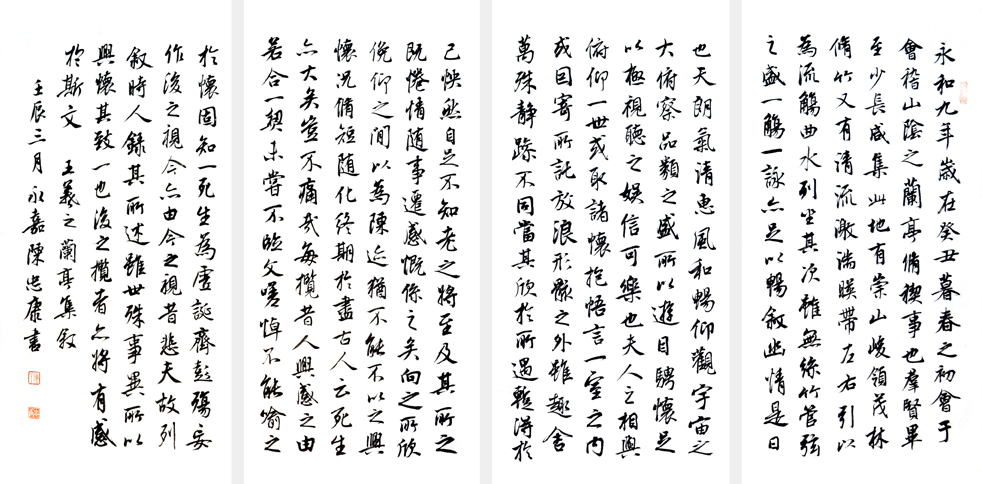 永和九年歲在癸丑暮春之初會于
會稽山陰之蘭亭脩禊事也羣賢畢
至少長咸集此地有崇山峻領茂林
脩竹又有清流激湍暎帶左右引以
為流觴曲水列坐其次雖無絲竹管弦
之盛一觴一詠亦足以暢敘幽情是日
也天朗氣清惠風和暢仰觀宇宙之
大俯察品類之盛所以遊目騁懷足
以極視聽之娛信可樂也夫人之相與
俯仰一世或取諸懷抱悟言一室之內
或因寄所託放浪形骸之外雖趣舍
萬殊靜躁不同當其欣於所遇暫得於
己怏然自足不知老之將至及其所之
既惓情隨事遷感慨係之矣向之所欣
俛仰之間以為陳迹猶不能不以之興
懷況脩短隨化終期於盡古人云死生
亦大矣豈不痛哉每攬昔人興感之由
若合一契未嘗不臨文嗟悼不能喻之
於懷固知一死生為虛誕齊彭殤妄
作後之視今亦由今之視昔悲夫故列
敘時人錄其所述雖世殊事異所以
興懷其致一也後之攬者亦將有感
於斯文 王羲之蘭亭集敘
壬辰三月永嘉陳忠康書